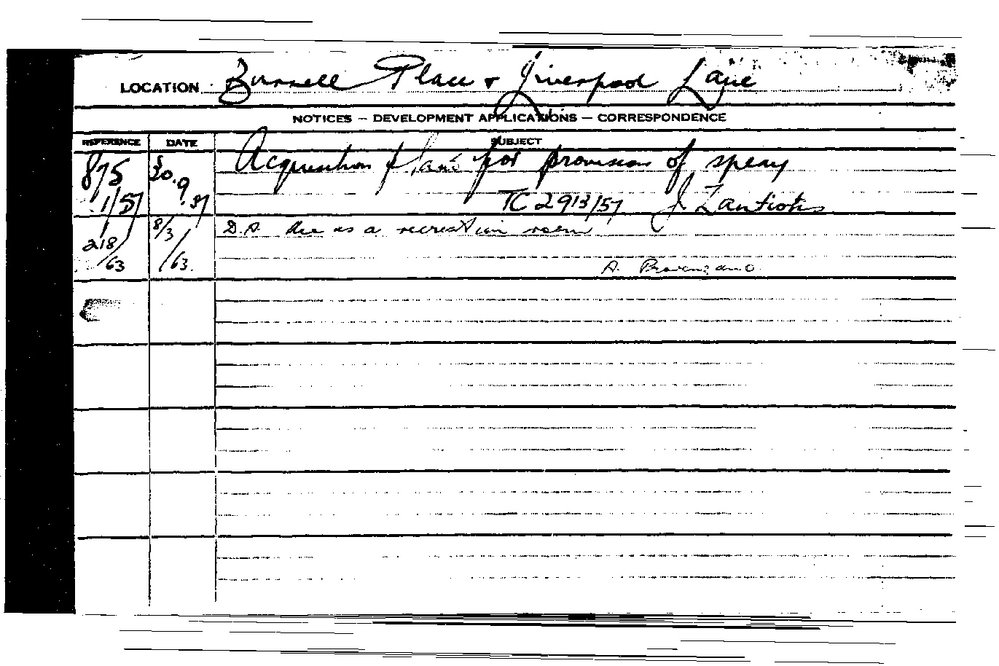 LOCATION Burnell Place & Liverpool Lane
NOTICES — DEVELOPMENT APPLICATIONS — CORRESPONDENCE
REFERENCE DATE SUBJECT
875 30.9 Acquisition of land for provision of splay
1/57 57 TC 2913/57 J. Zantiotis
218 8/3 D.A. use as a recreation room
/63 /63 A. Provenzano